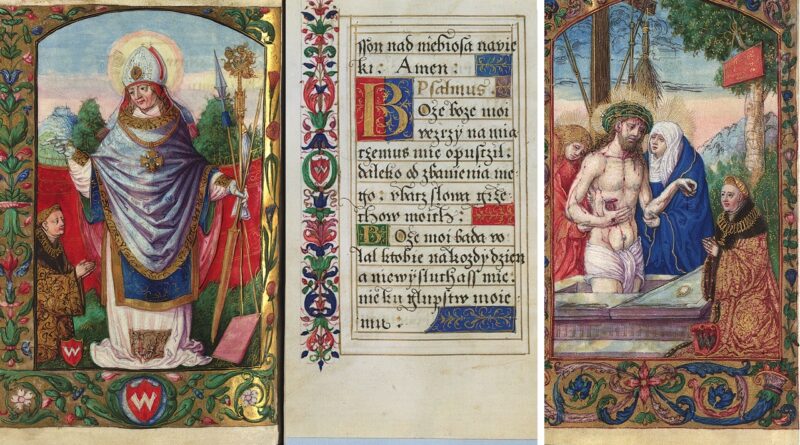 W
W
ssōn nad niebiosa na wie
ki: Amen:
Psalmus.
Boże boze moi
wezrzy na mia
czemus mie opusczil.
daleko od zbawienia me
go: slowa grze
chow moich:
Boże moi bada wo
lal ktobie na kozdy dzien
a niewysluchass mie:
nie ku glupstw moie
mu: